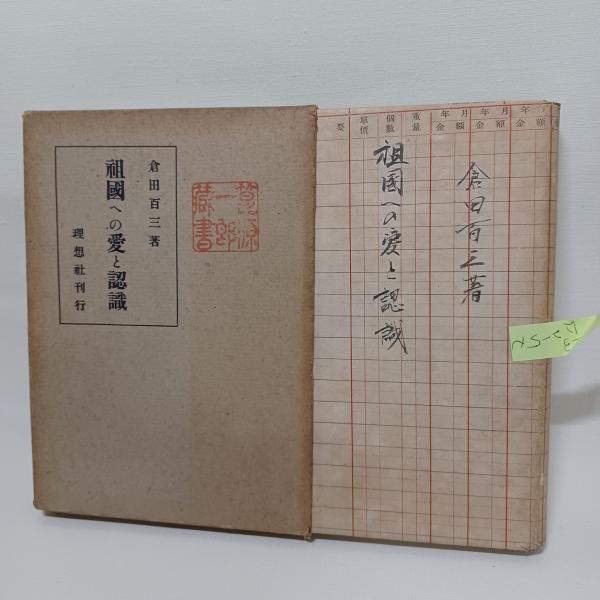 倉田百三著
祖國への愛と認識
理想社刊行
一郎
藏書
年月年月年月
重量 金額金額金額
個數
單價
要
倉田百三著
祖国への愛と認識